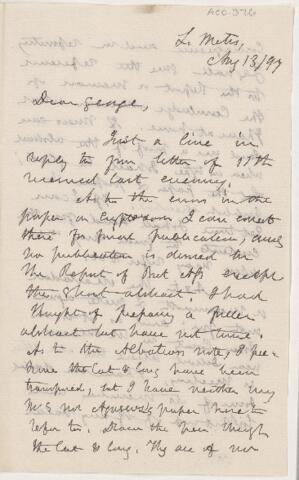 ACC-976
L. Metis,
Aug 13/97
Dear George,
Just a line in
reply to your letter of 11th
received last evening.
As to the errors in the
paper on Cryptozoon I can correct
these for final publication, and
no publication is allowed in
the Report of Brit Ass except
the short abstract. I had
thought of preparing a fuller
abstract but have not time.
As to the note, I per-
ceive the Lat & Long have been
transposed, but I have neither my
M.S nor paper here to
refer to. the
the Lat & Long. My ace of